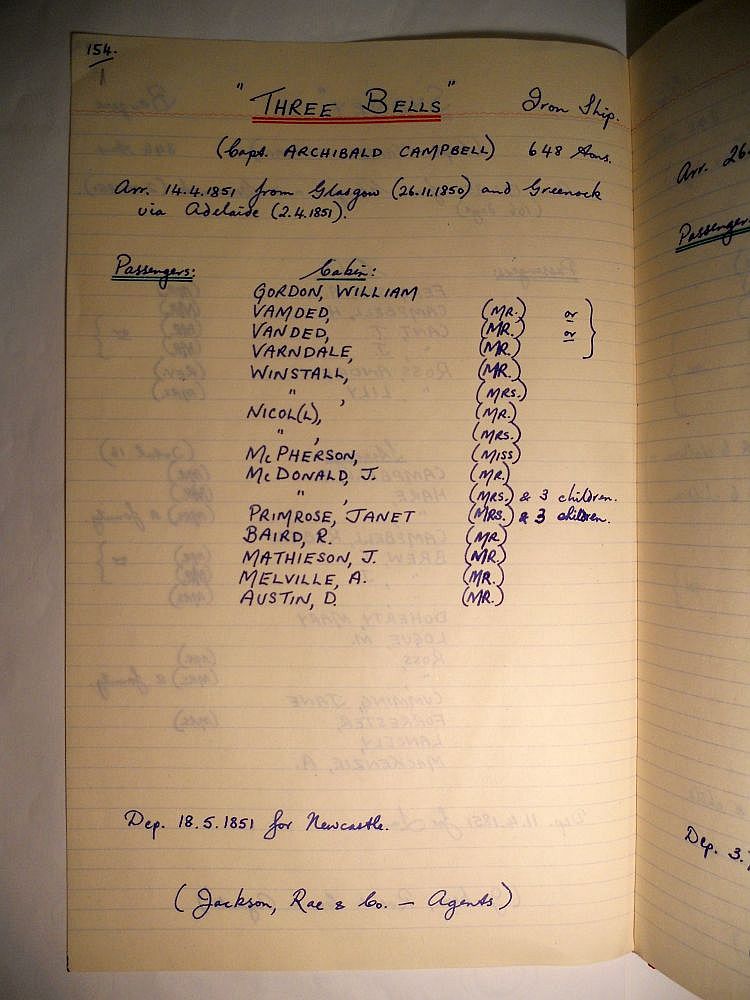 154.
"THREE BELLS" Iron Ship.
(Capt. ARCHIBALD CAMPBELL) 648 tons.
Arr. 14.4.1851 from Glasgow (26.11.1850) and Greenock
via Adelaide (2.4.1851).
Passengers: Cabin:
GORDON, WILLIAM
VAMDED, (MR.) or
VANDED, (MR.) or
VARNDALE, (MR.)
WINSTALL, (MR.)
" , (MRS.)
NICOL(L), (MR.)
" , (MRS.)
McPHERSON, (MISS)
McDONALD, J. (MR.)
" , (MRS.) & 3 children.
PRIMROSE, JANET (MRS.) & 3 children.
BAIRD, R. (MR.)
MATHIESON, J. (MR.)
MELVILLE, A. (MR.)
AUSTIN, D. (MR.)
Dep. 18.5.1851 for Newcastle.
(Jackson, Rae & Co. — Agents)
Arr. 26.
Passenger
Dep. 3.